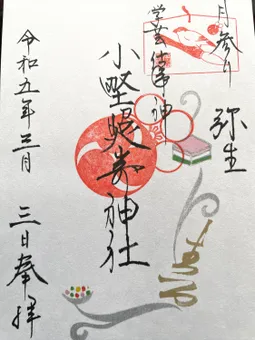 月参り
弥生
学芸 仕事 神
小野照崎神社
令和五年三月
三日奉拝